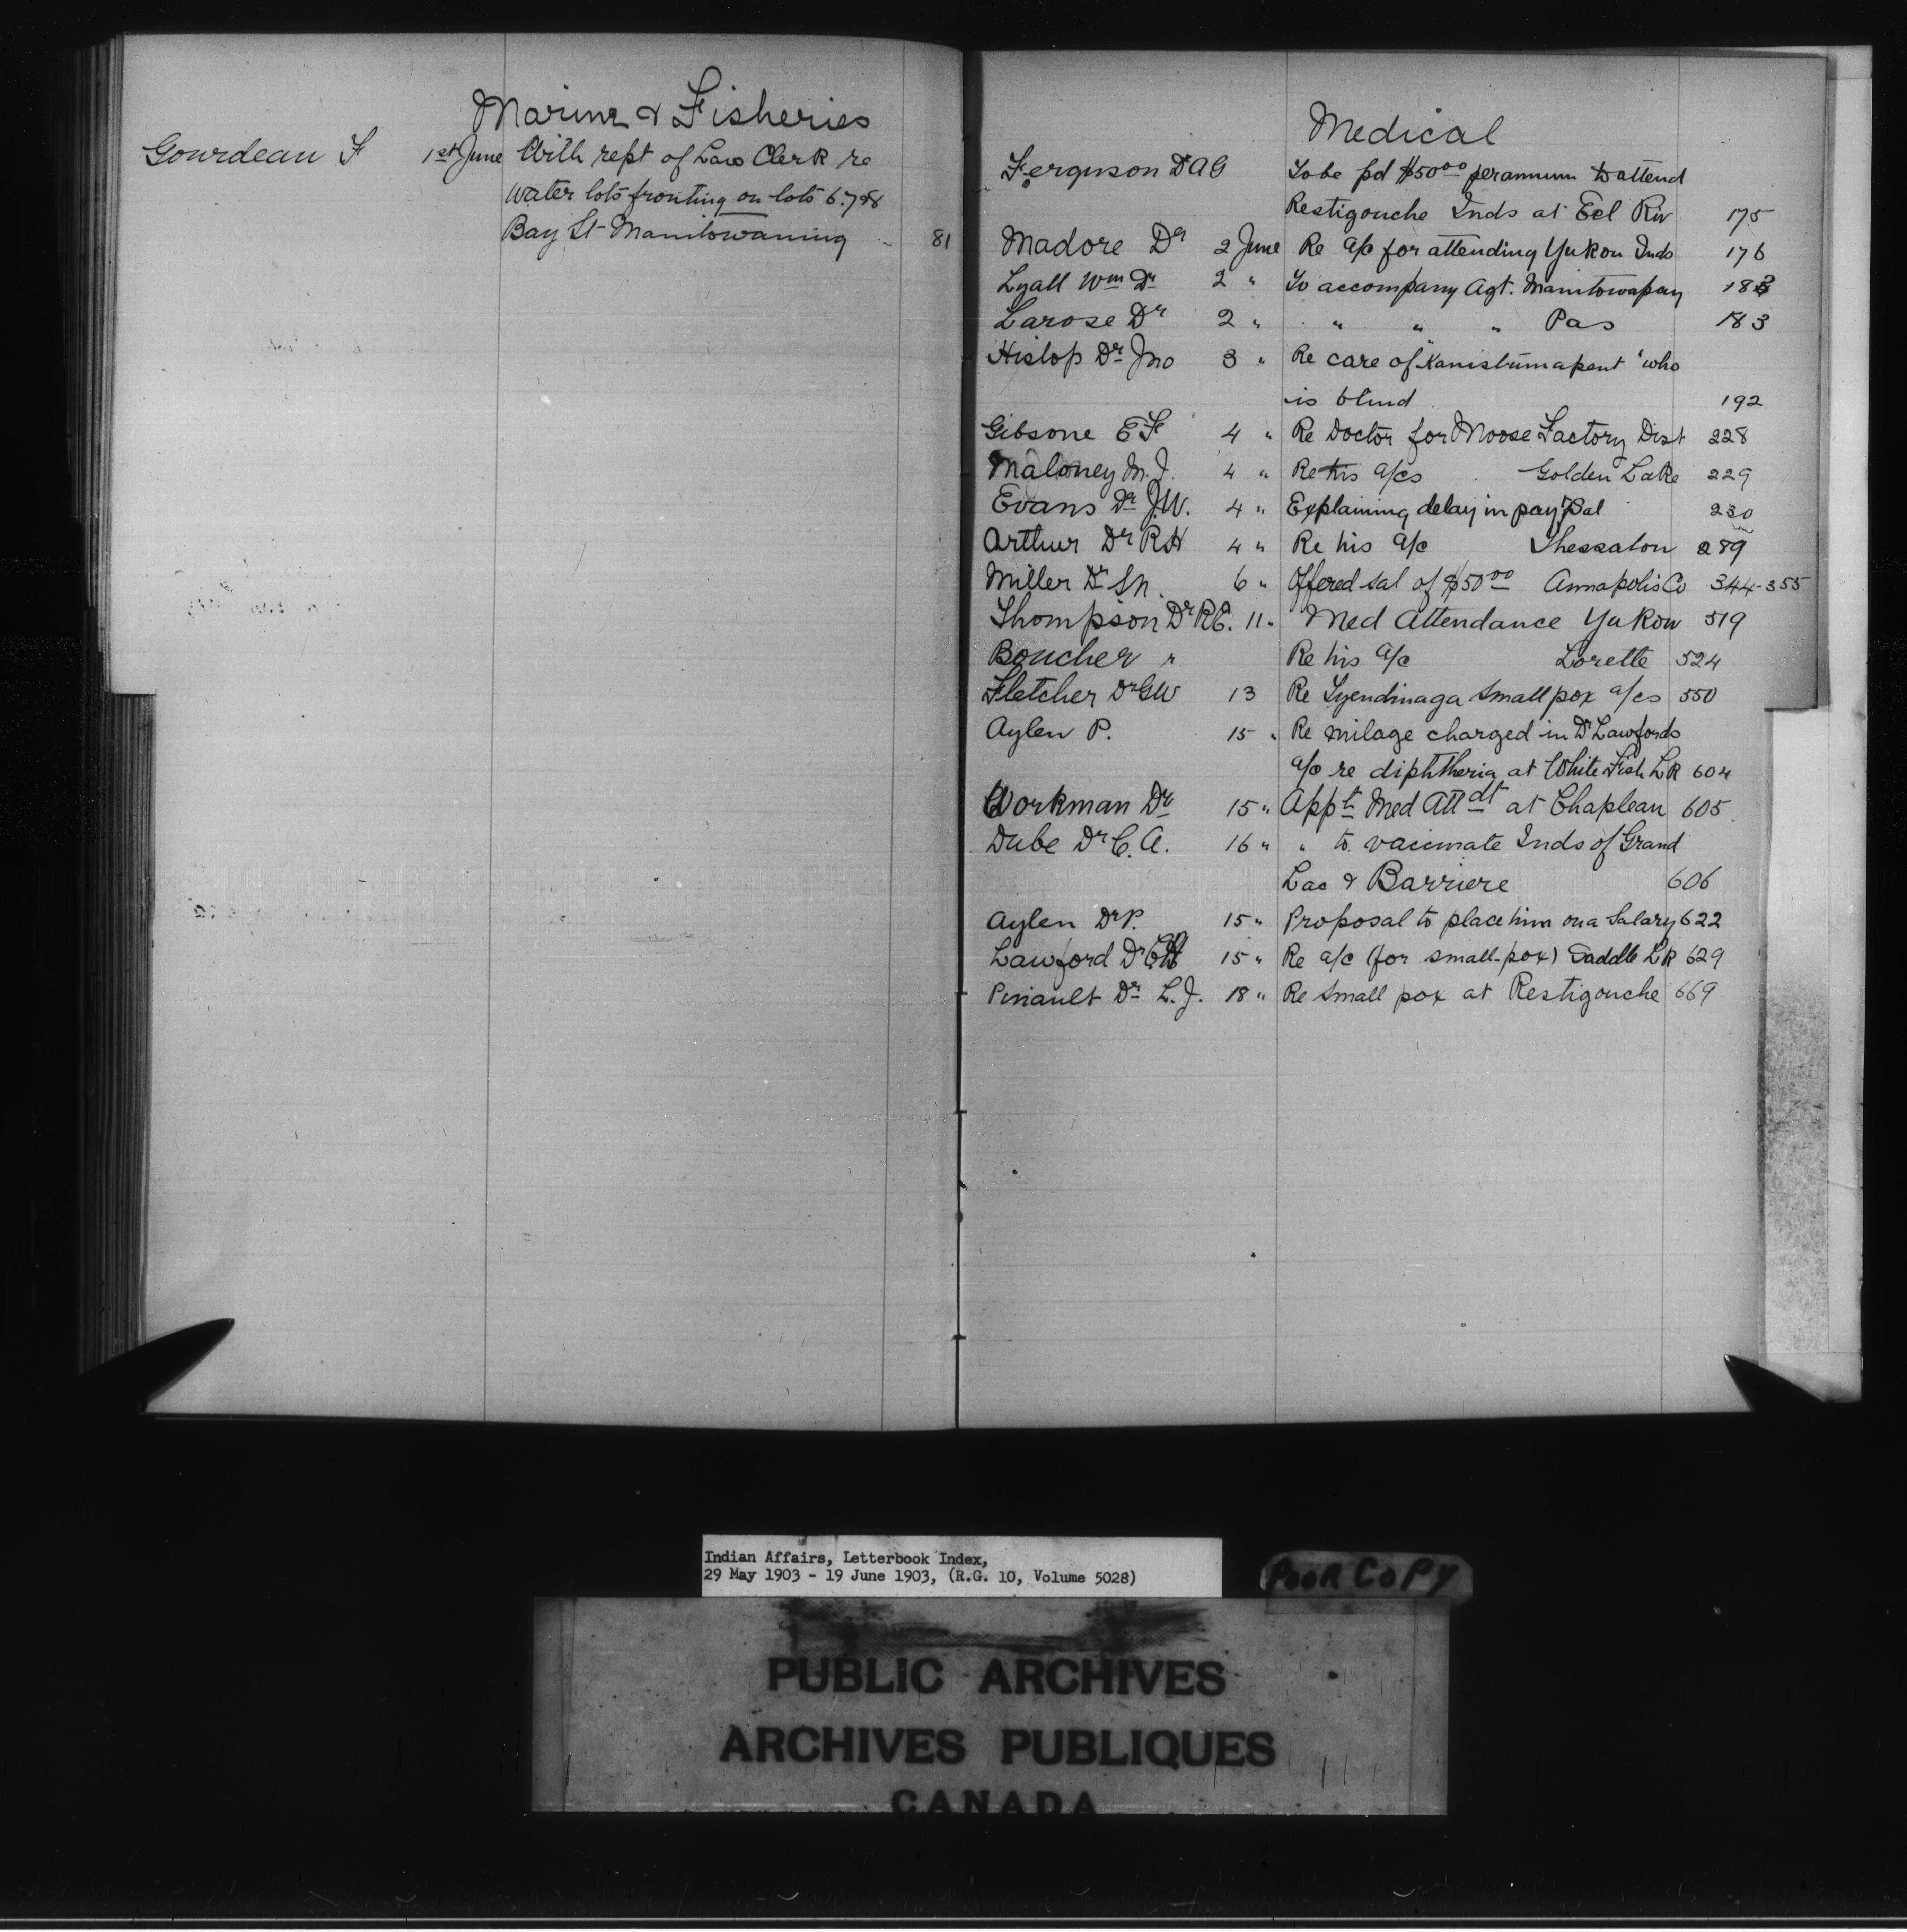 Marine & Fisheries
Gourdeau F 1st June With rept of Law Clerk re
water lots fronting on lots 6.7&8
Bay St Manitowaning 81
Medical
Ferguson Dr A G To be pd $50 00 per annum to attend
Restigouche Inds at Eel Riv 175
Madore Dr 2 June Re a/c for attending Yukon Inds 176
Lyall Wm Dr 2 " To accompany Agt. Manitowapay 183
Larose Dr 2 " " " " Pas 183
Hislop Dr Jno 3 " Re care of "Kanistumapent" who
is blind 192
Gibsone E F 4 " Re Doctor for Moose Factory Dist 228
Maloney M. J. 4 " Re his a/cs Golden Lake 229
Evans Dr J.W. 4 " Explaining delay in pay Sal 230
Arthur Dr R H 4 " Re his a/c Thessalon 289
Miller Dr 6 " Offered sal of $50 00 Annapolis Co 344-355
Thompson Dr R E. 11 " Med Attendance Yukon 519
Boucher " Re his a/c Lorette 524
Fletcher Dr G W 13 Re Tyendinaga Small pox a/cs 550
Aylen P. 15 " Re milage charged in Dr Lawfords
a/c re diphtheria at White Fish Lk 604
Workman Dr 15 " Appt Med Attdt at Chapleau 605
Dube Dr C. A. 16 " " to vaccinate Inds of Grand
Lac & Barriere 606
Aylen Dr P. 15 " Proposal to place him on a Salary 622
Lawford Dr 15 " Re a/c (for small-pox) Saddle Lk 629
Pinault Dr L. J. 18 " Re Small pox at Restigouche 669
Indian Affairs, Letterbook Index,
29 May 1903 - 19 June 1903, (R.G. 10, Volume 5028)
POOR COPY
PUBLIC ARCHIVES
ARCHIVES PUBLIQUES
CANADA